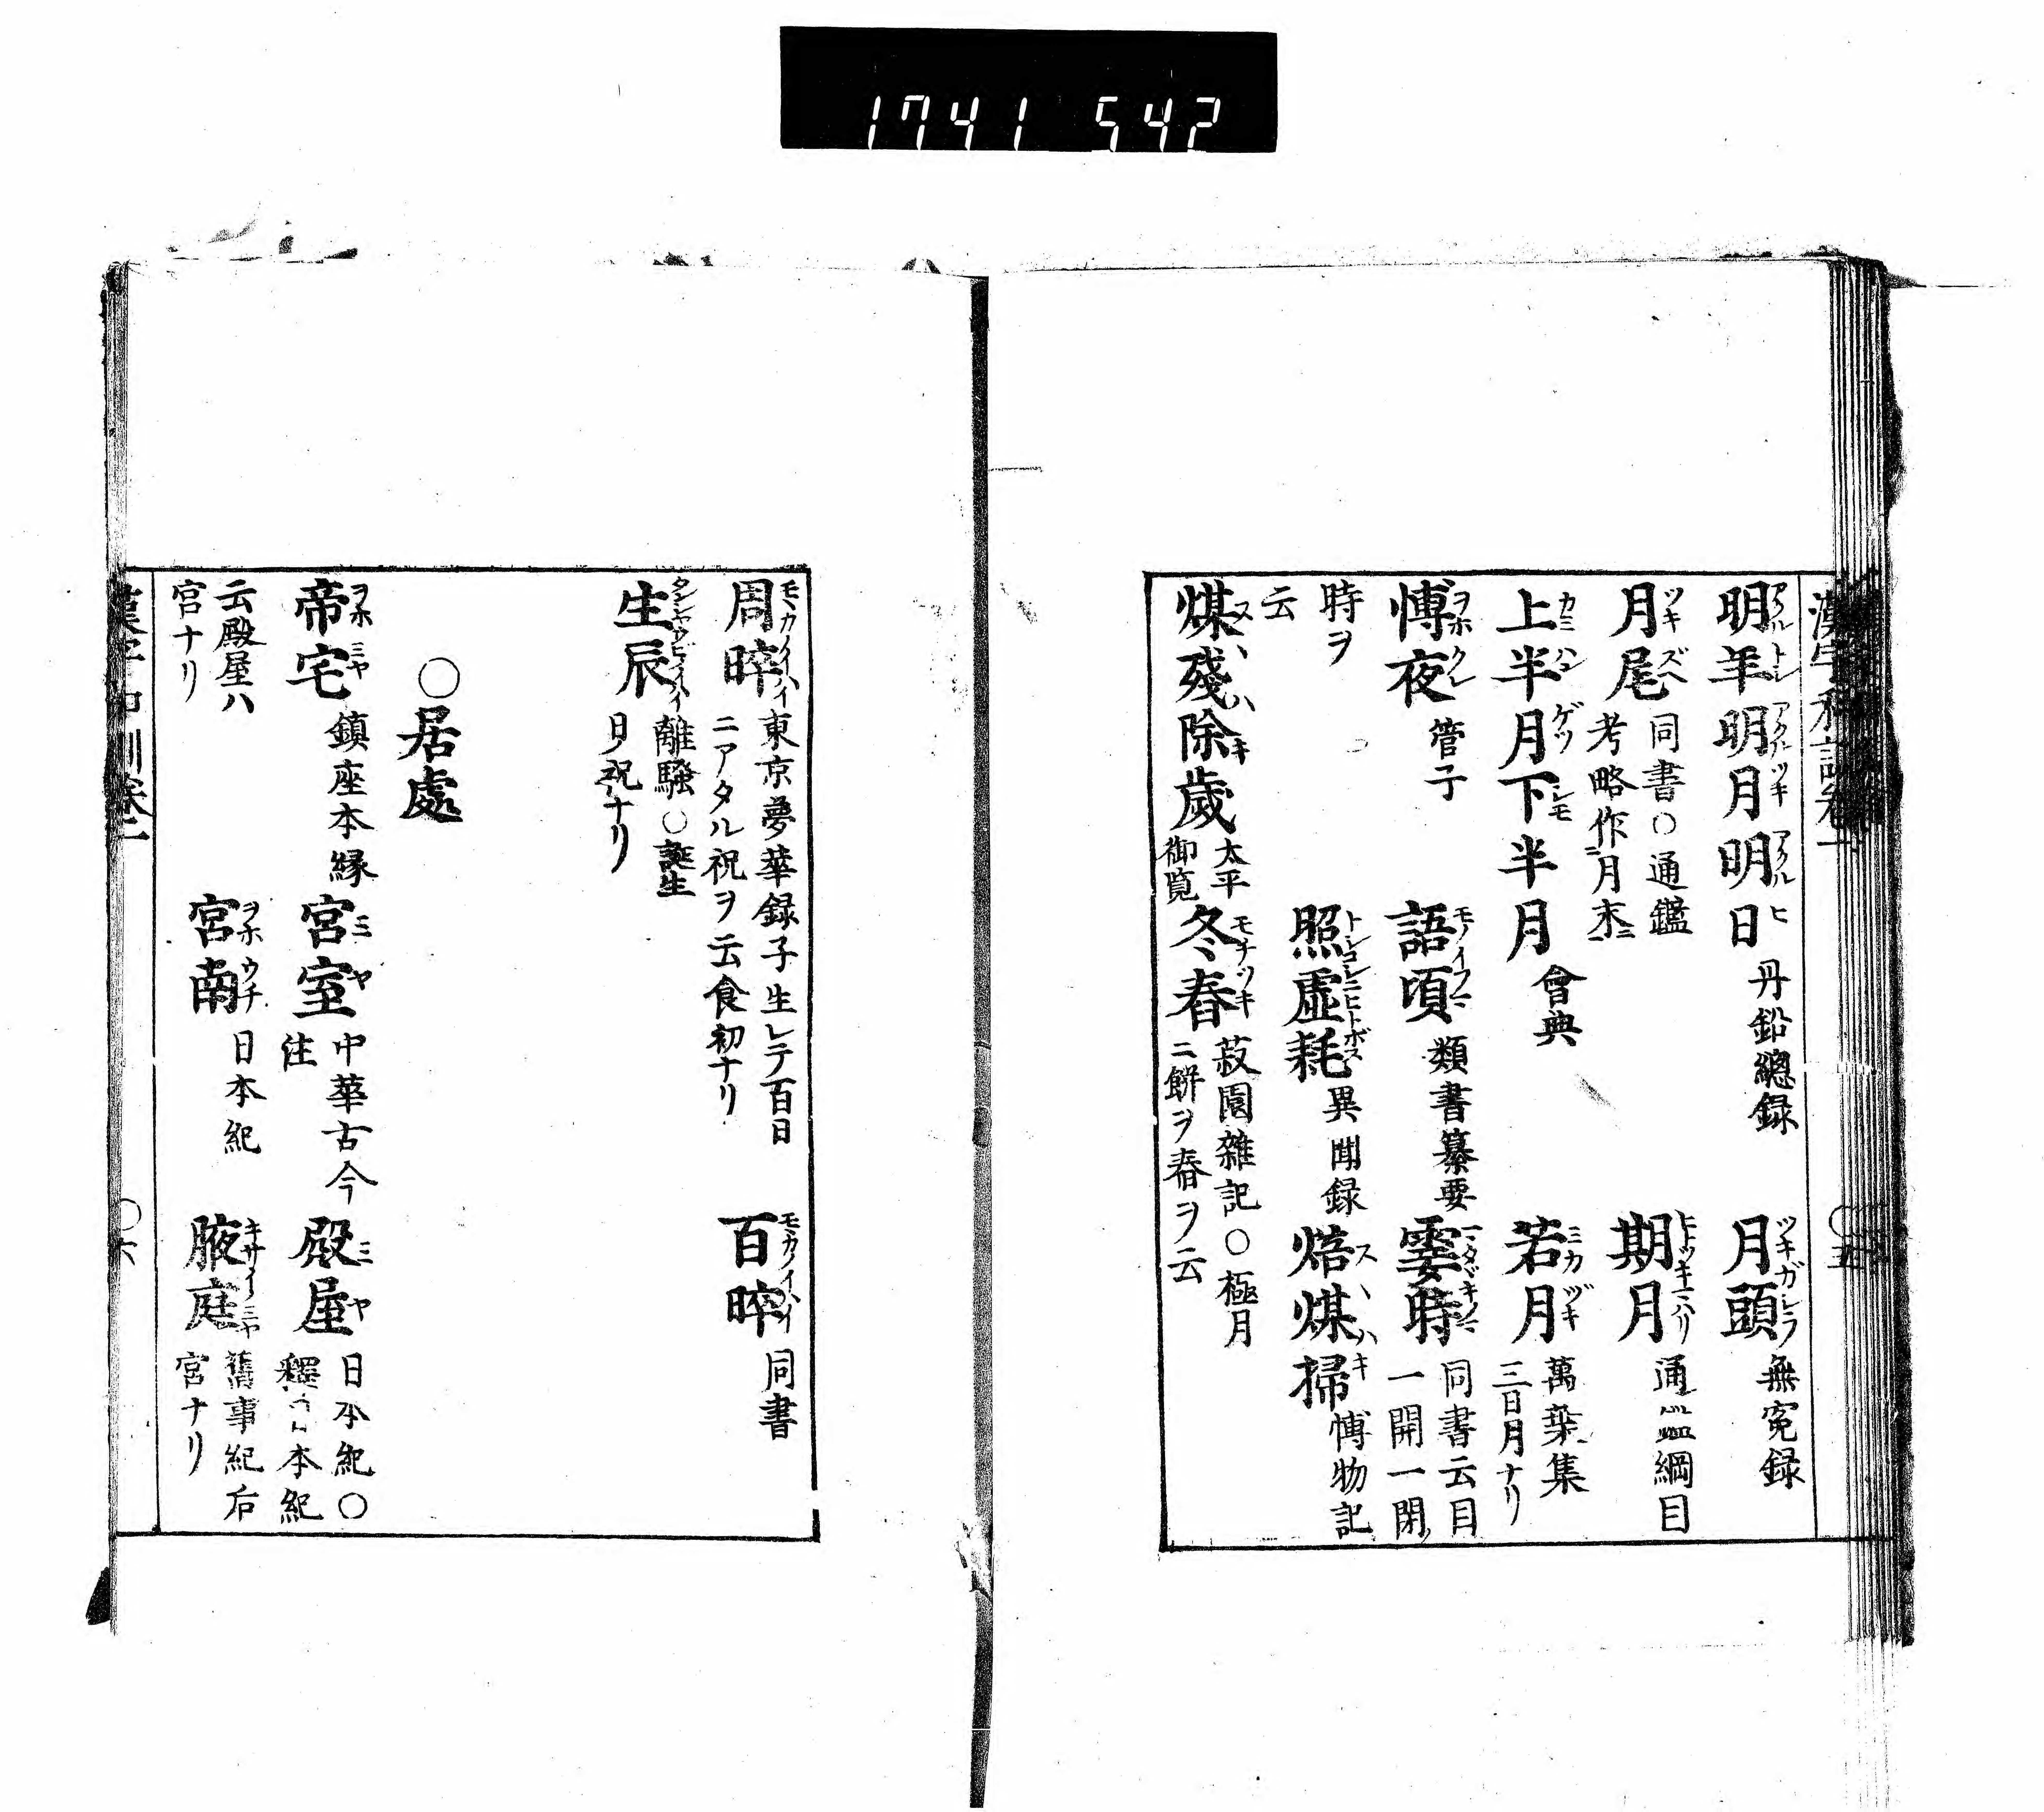 1741 542
明年 明月 明日 丹鉛總録 月頭 無寃録
アクルトシ アクルツキ アクルヒ ツキガシラ
月尾 同書○通鑑考略作月末 期月 通鑑綱目
ツキズヘ
上半月下半月 會典 若月 萬葉集 三日月ナリ
カミハンゲツシモ ミカヅキ
愽夜 管子 語頃 類書纂要 霎時 同書云目一開一閉
ヲホクレ モノイフマ マタヽキノマ
時ヲ云 照虚耗 異聞録 焙煤掃 愽物記
トシコシニヒトボス スヽハキ
煤殘除歲 太平御覧 冬舂 菽園雜記○極月ニ餅ヲ舂ヲ云
スヽハキ モチツキ
周晬 東京夢華録子生レテ百日ニアタル祝ヲ云食初ナリ 百晬 同書
生辰 離騒○誕生日ノ祝ナリ
○居處
帝宅 鎮座本縁 宮室 中華古今注 殿屋 日本紀○釋 本紀
ヲホミヤ ミヤ ミヤ
云殿屋ハ宮ナリ 宮南 日本紀 腋庭 舊事紀后宮ナリ
ヲホウチ キサイミヤ